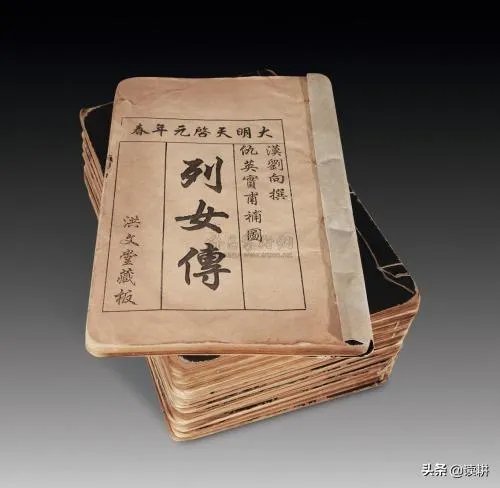 大明天啓元年春
漢劉向撰
仇英實甫補圖
列女傳
洪文堂藏板
头条 @读耕